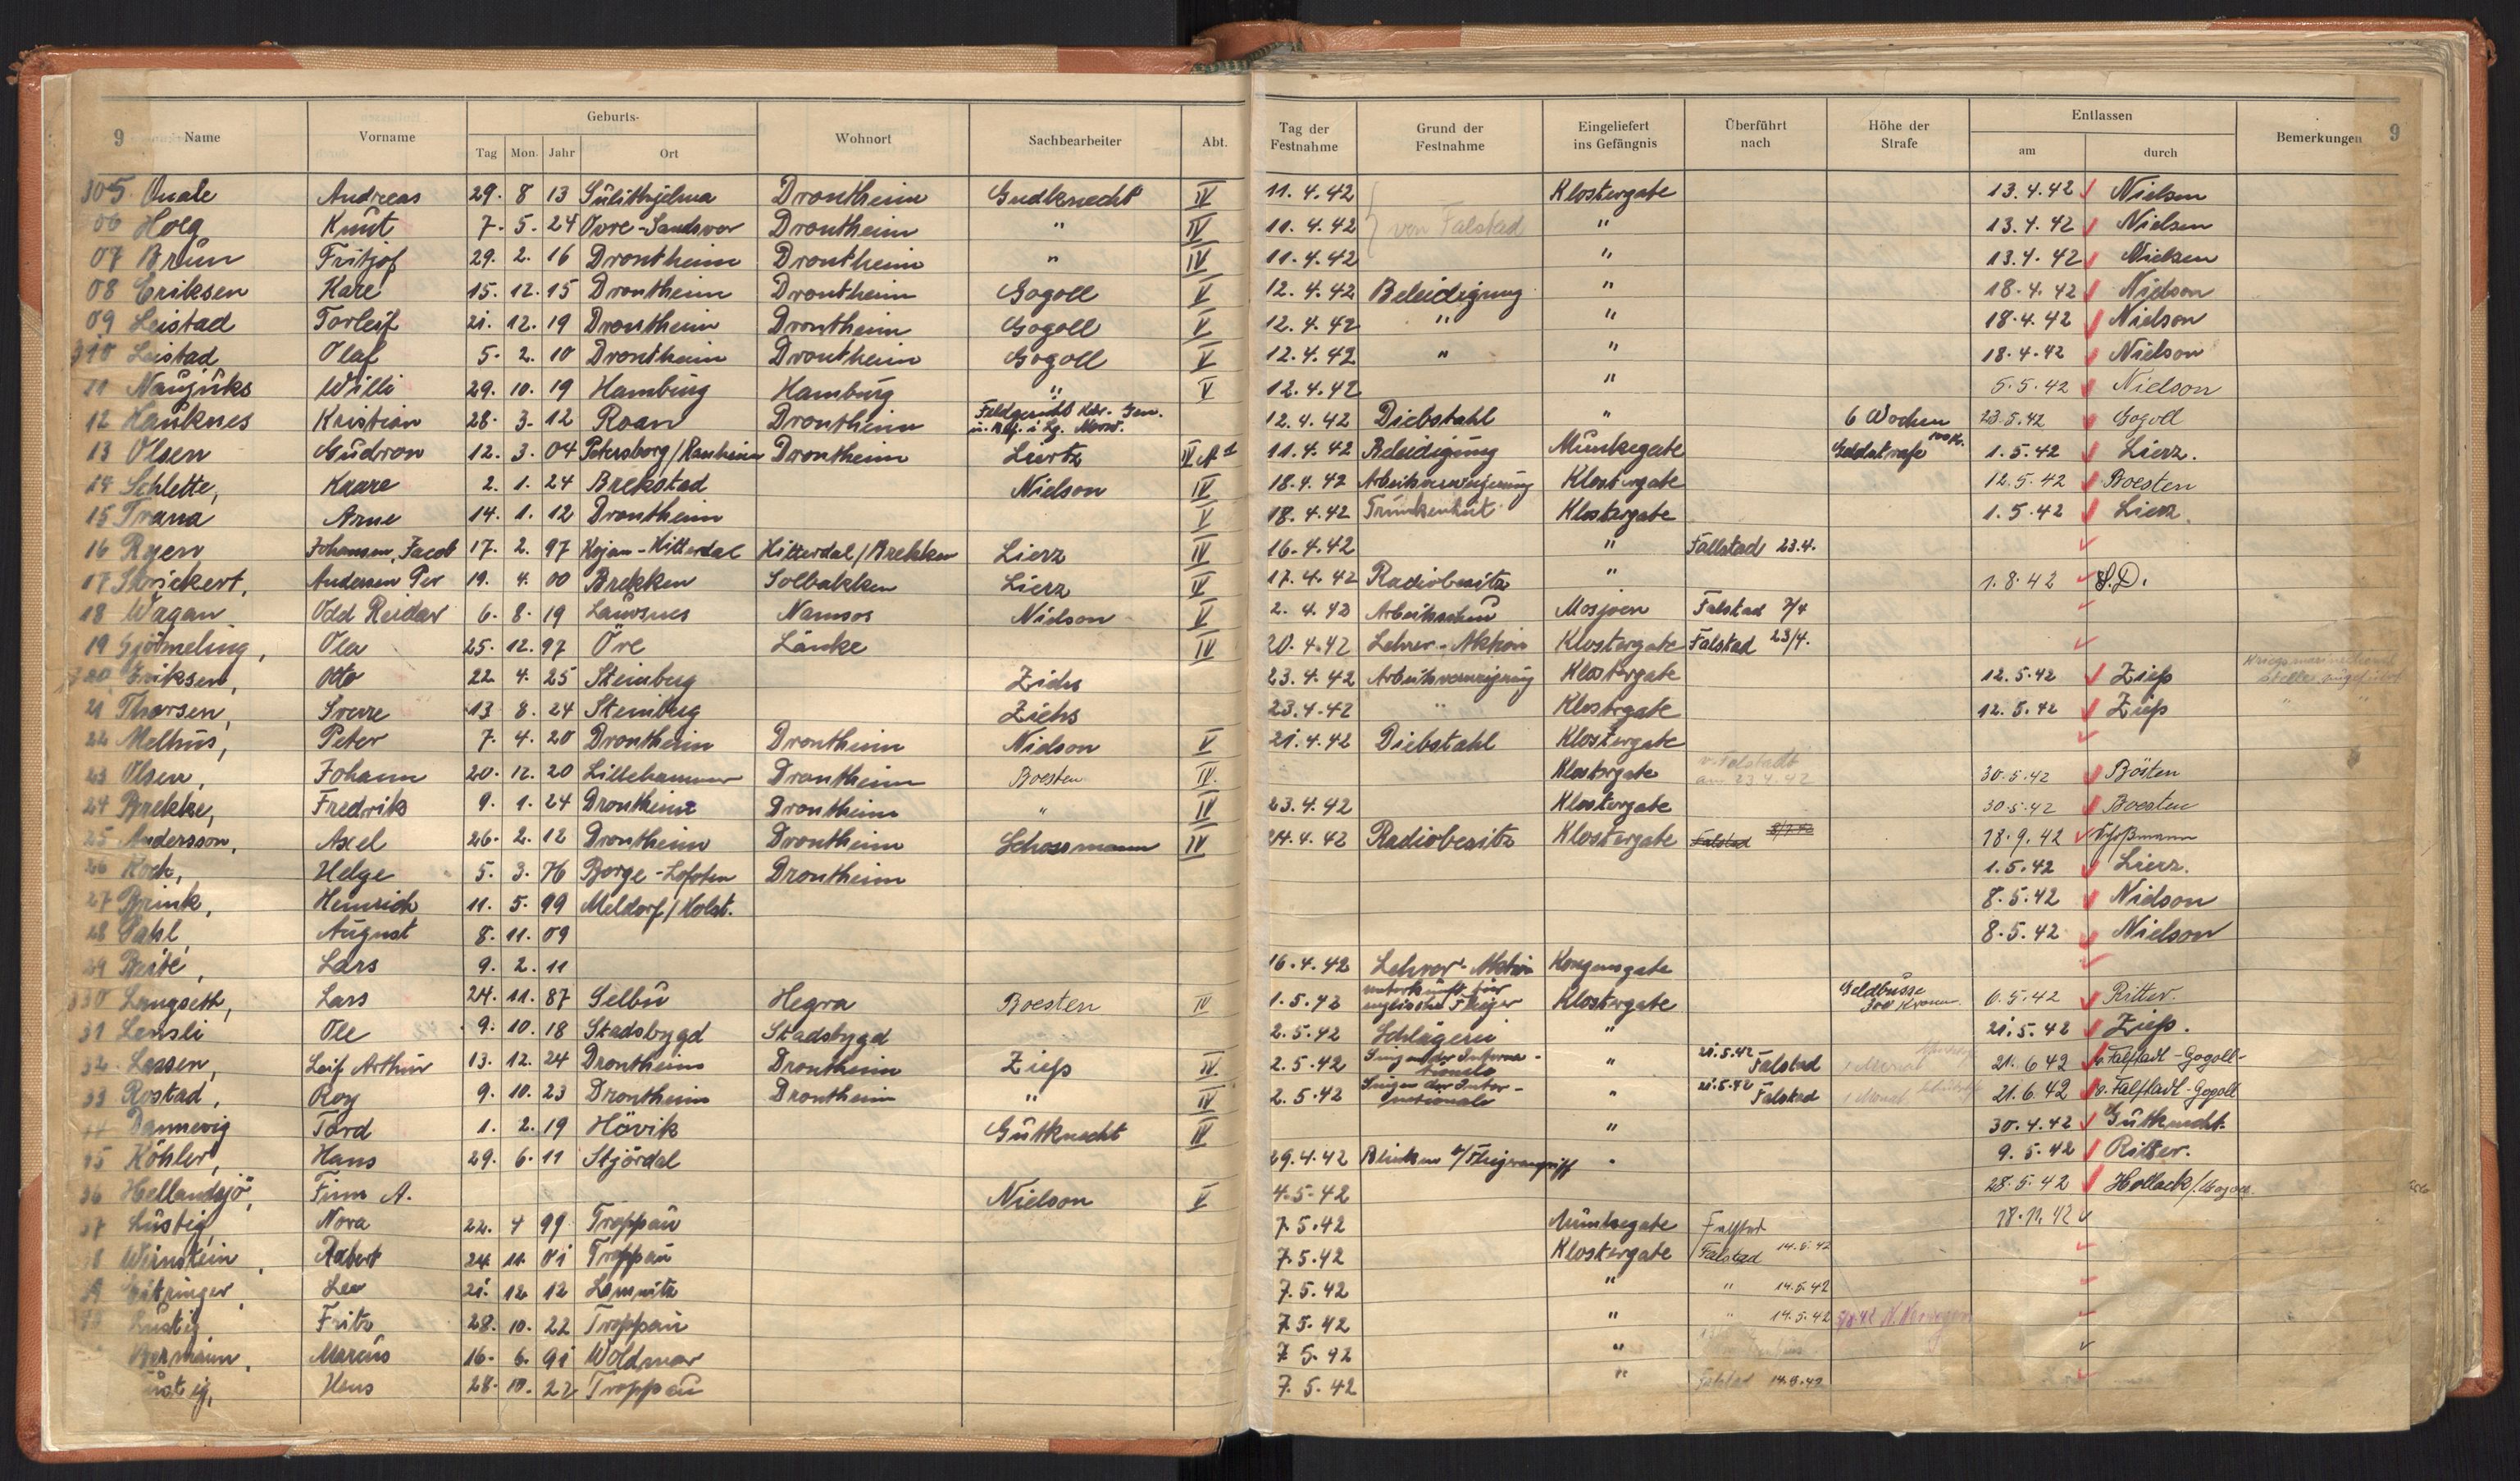 9 Name Vorname Geburts- Wohnort Sachbearbeiter Abt. Tag der Festnahme Grund der Festnahme Eingeliefert ins Gefängnis Überführt nach Höhe der Strafe Entlassen Bemerkungen 9
Tag Mon. Jahr Ort am durch
305 Quale Andreas 29. 8 13 Sulithjelma Drontheim Gudknecht IV 11.4.42 Klostergate 13.4.42 Nielson
06 Holg Knut 7. 5. 24 Övre-Sandsver Drontheim " IV 11.4.42 von Falstad " 13.4.42 Nielsen
07 Brun Fritjof 29. 2. 16 Drontheim Drontheim " IV 11.4.42 " 13.4.42 Nielsen
08 Eriksen Kare 15. 12. 15 Drontheim Drontheim Gogoll V 12.4.42 Beleidigung " 18.4.42 Nielson
09 Leistad Torleif 21. 12. 19 Drontheim Drontheim Gogoll V 12.4.42 " " 18.4.42 Nielson
310 Leistad Olaf 5. 2. 10 Drontheim Drontheim Gogoll V 12.4.42 " " 18.4.42 Nielson
11 Naujuks Willi 29. 10. 19 Hamburg Hamburg " V 12.4.42 " 5.5.42 Nielson
12 Hauknes Kristian 28. 3. 12 Roan Drontheim Feldgericht 12.4.42 Diebstahl " 6 Wochen 23.5.42 Gogoll
13 Olsen Gudron 12. 3. 04 Petersborg/Ranheim Drontheim Liertz 11.4.42 Beleidigung Munkegate Geldstrafe 1.5.42 Lierz.
14 Schlette, Knare 2. 1. 24 Brekstad Nielson IV 18.4.42 Arbeitsverweigerung Klostergate 12.5.42 Boesten
15 Trana Arne 14. 1. 12 Drontheim V 18.4.42 Trunkenheit Klostergate 1.5.42 Lierz.
16 Ryen Johansen, Jacob 17. 2. 97 Kojan-Hitterdal Hitterdal/Brekken Lierz IV 16.4.42 " Fallstad 23.4.
17 Strickert, Andersen Per 19. 4. 00 Brekken Solbakken Lierz V 17.4.42 Radiobesitz " 1.8.42 S.D.
18 Wagan Odd Reidar 6. 8. 19 Lauvsnes Namsos Nielson V 2.4.42 Arbeitsscheu Mosjoen Falstad 7/4
19 Gjömeling, Ola 25. 12. 97 Öre Lånke IV 20.4.42 Lehrer-Aktion Klostergate Falstad 23/4.
320 Eriksen, Otto 22. 4. 25 Steinberg Ziehs 23.4.42 Arbeitsverweigerung Klostergate 12.5.42 Zieß
21 Thorsen, Sverre 13 8. 24 Steinberg Ziehs 23.4.42 " Klostrgate 12.5.42 Zieß " "
22 Melhus, Peter 7. 4. 20 Drontheim Drontheim Nielson V 21.4.42 Diebstahl Klostergate
23 Olsen, Johann 20. 12. 20 Lillehammer Drontheim Boesten IV. Klostergate v. Falstadt am 23.4.42 30.5.42 Bösten
24 Brekke, Fredrik 9. 1. 24 Drontheim Drontheim " IV 23.4.42 Klostergate 30.5.42 Boesten
25 Andersson, Axel 26. 2. 12 Drontheim Drontheim Schossmann IV 24.4.42 Radiobesitz Klostergate Falstad 18.9.42 Schoßmann
26 Koch, Helge 5. 3. 76 Borge-Lofoten Drontheim 1.5.42 Lierz.
27 Brink, Heinrich 11. 5. 99 Meldorf/Holst. 8.5.42 Nielson
28 Pahl, August 8. 11. 09 8.5.42 Nielson
29 Lars 9. 2. 11 16.4.42 Lehrer-Aktion Kongensgate
330 Langseth, Lars 24. 11. 87 Selbu Hegra Boesten IV 1.5.42 unterkunft für englische Flieger Klostergate Geldbusse 300 Kronen. 6.5.42 Ritter.
31 Lensli Ole 9. 10. 18 Stadsbygd Stadsbygd 2.5.42 Schlägerei " 21.5.42 Zieß.
32. Lassen, Leif Arthur 13. 12. 24 Drontheim Drontheim Zieß IV 2.5.42 Singen der Internationale " 21.5.42 Falstad 1 Monat 21.6 42 v. Falstadt-Gogoll-
33 Rostad, Roy 9. 10. 23 Drontheim Drontheim " IV 2.5.42 Singen der Internationale " 21.5.42 Falstad 1 Monat 21.6.42 v. Falstadt-Gogoll
Dannevig Tord 1. 2. 19 Hövik Gutknecht IV " 30.4.42 Gutknecht.
35 Köhler, Hans 29. 6. 11 Stjördal 29.4.42 Blinken b/Fliegerangriff " 9.5.42 Ritter.
36 Hellandsjö, Finn A. Nielson V 4.5.42 28.5.42 Hollack/Gogoll.
37 Lustig, Nora 22. 4 99 Troppau 7.5.42 Munkegate Falstad 18.11.42
38 Weinstein, Robert 24. 11. 01 Troppau 7.5.42 Klostergate Falstad 14.5.42
39 Eitzinger, Leo 21. 12 12 7.5.42 " " 14.5.42
Lustig Fritz 28. 10. 22 Troppau 7.5.42 " " 14.5.42 N. Norwegen
Bermann, Marcus 16. 6. 91 Woldmar 7.5.42 "
Lustig, Hans 28. 10. 22 Troppau 7.5.42 " Falstad 14.5.42